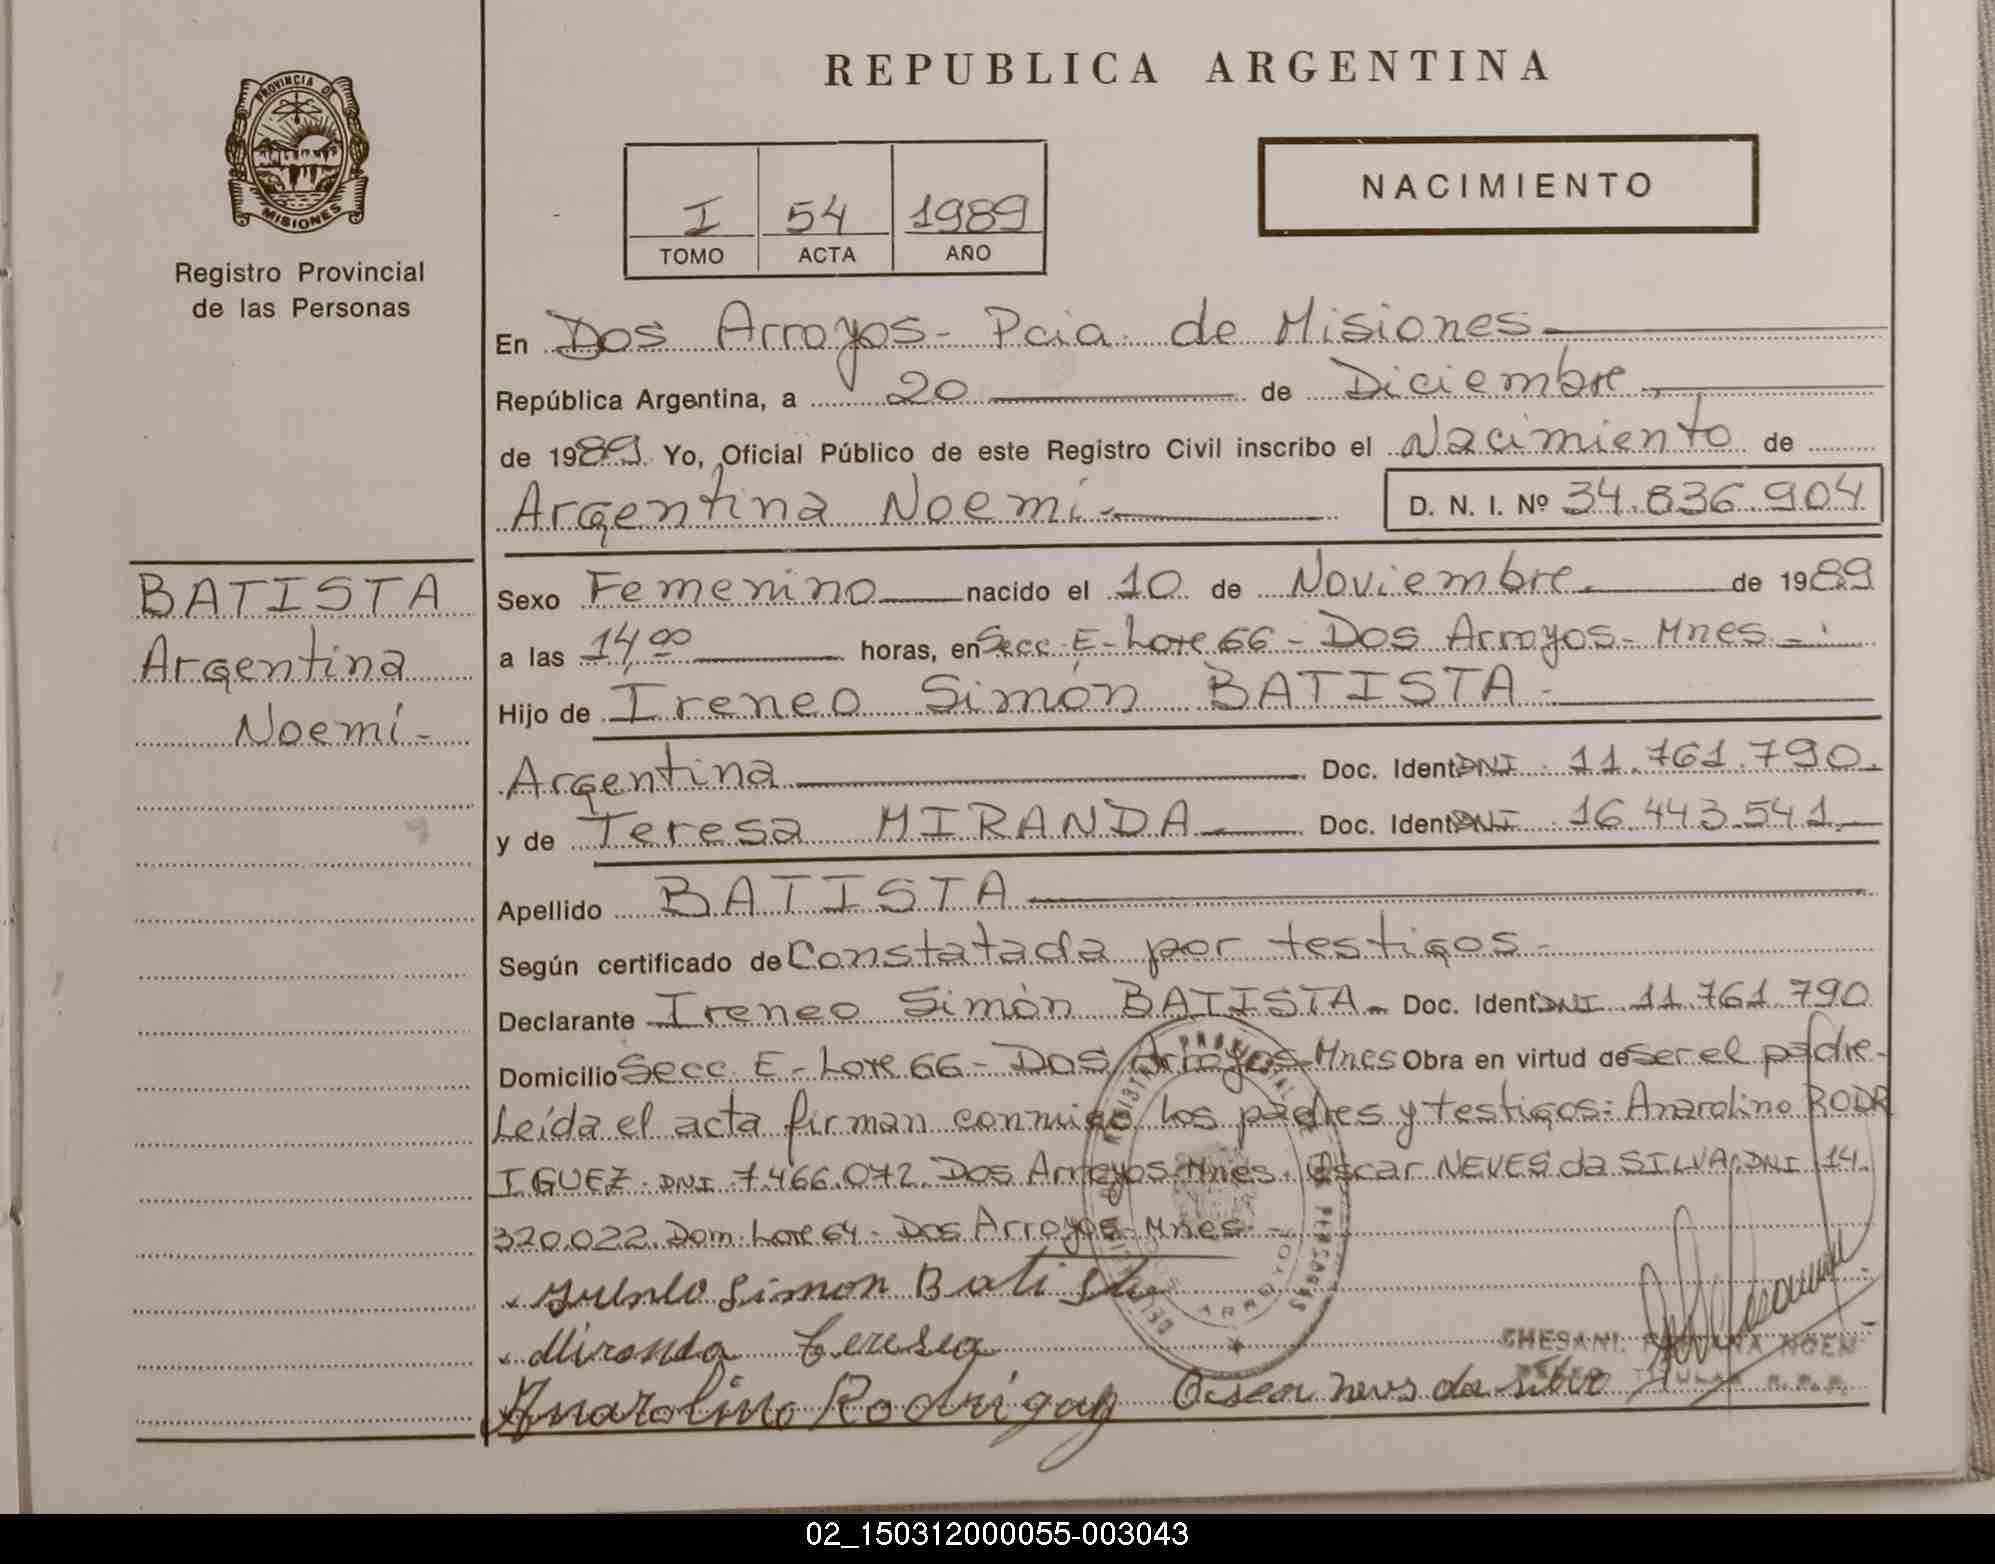 REPUBLICA ARGENTINA
PROVINCIA DE
MISIONES
Registro Provincial
de las Personas
NACIMIENTO
I 54 1989
TOMO ACTA AÑO
En Dos Arroyos - Pcia. de Misiones.
República Argentina, a 20 de Diciembre
de 1989. Yo, Oficial Público de este Registro Civil inscribo el Nacimiento de
Argentina Noemí.- D. N. I. Nº 34.836.904
BATISTA
Argentina
Noemí-
Sexo Femenino nacido el 10 de Noviembre. de 1989
a las 14,00 horas, en Secc. E - Lote 66 - Dos Arroyos - Mnes -.
Hijo de Ireneo Simón BATISTA.
Argentina Doc. Ident. DNI 11.761.790.
y de Teresa MIRANDA Doc. Ident. DNI 16.443.541.
Apellido BATISTA
Según certificado de Constatada por testigos.-
Declarante Ireneo Simón BATISTA.- Doc. Ident. DNI 11.761.790
Domicilio Secc. E - Lote 66 - Dos Arroyos - Mnes Obra en virtud de ser el padre.-
Leída el acta firman conmigo los padres y testigos: Anarolino RODR
IGUEZ. DNI 7.466.072. Dos Arroyos - Mnes. Oscar NEVES da SILVA. DNI 14.
320.022. Dom. Lote 64 - Dos Arroyos - Mnes.-
Simon Batista
Miranda Teresa
Anarolino Rodrigaz Oscar neves da silva
CHESANI NOEMI
TITULAR R.P.P.
02_150312000055-003043